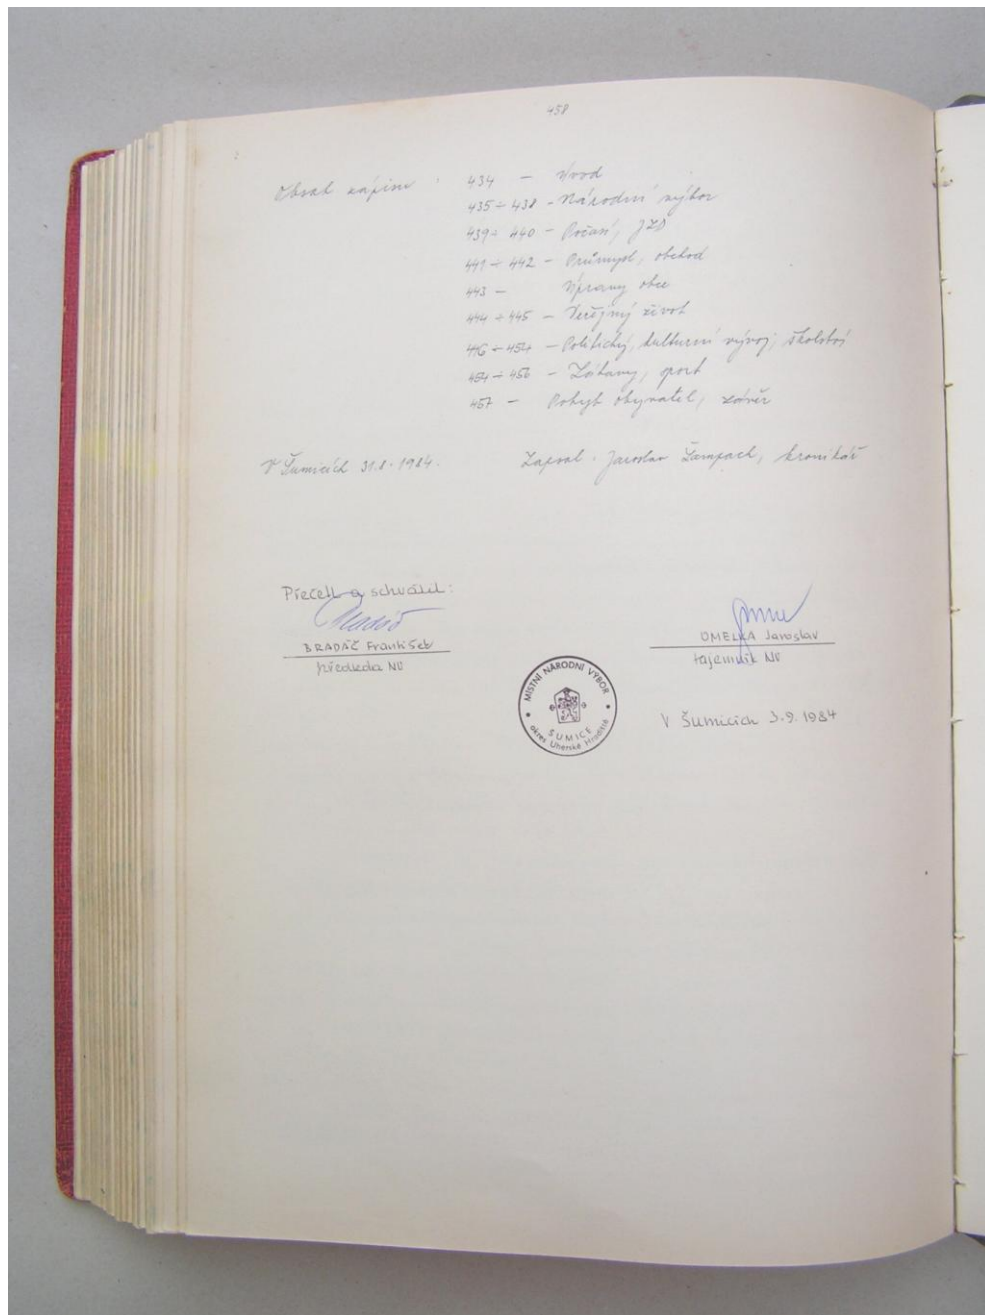 458
Obsah zápisu :
434 - Úvod
435 ÷ 438 - Národní výbor
439 ÷ 440 - Počasí, JZD
441 ÷ 442 - Průmysl, obchod
443 - Úpravy obce
444 ÷ 445 - Veřejný život
446 ÷ 454 - Politický, kulturní vývoj, školství
454 ÷ 456 - Zábavy, sport
457 - Pohyb obyvatel, závěr
V Šumicích 31.8.1984. Zapsal. Jaroslav kronikář
Přečetl a schválil:
BRADÁČ František
předseda NV
OMELKA Jaroslav
tajemník NV
MÍSTNÍ NÁRODNÍ VÝBOR
ŠUMICE
okres Uherské Hradiště
V Šumicích 3.9.1984